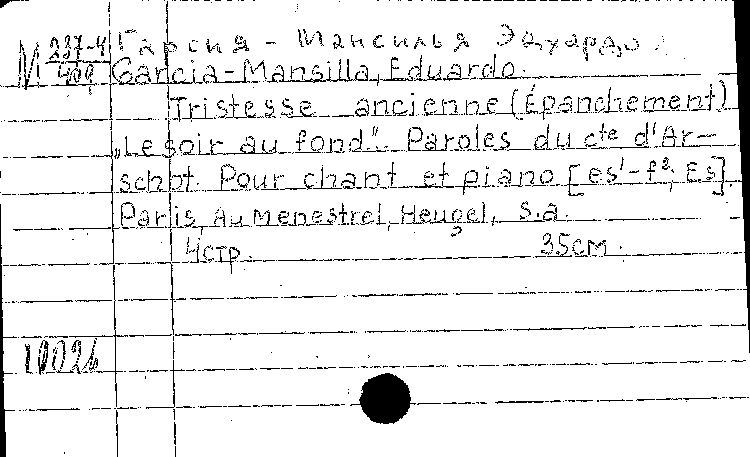 М 237-4/409
Гарсия-Мансилья Эдуардо.
Garcia-Mansilla, Eduardo.
Tristesse ancienne (Épanchement)
„Le soir au fond". Paroles du cte d'Ar-
schot. Pour chant et piano [es¹-f²; Es].
Paris, Au Menestrel, Heugel, s.a.
4стр. 35см.